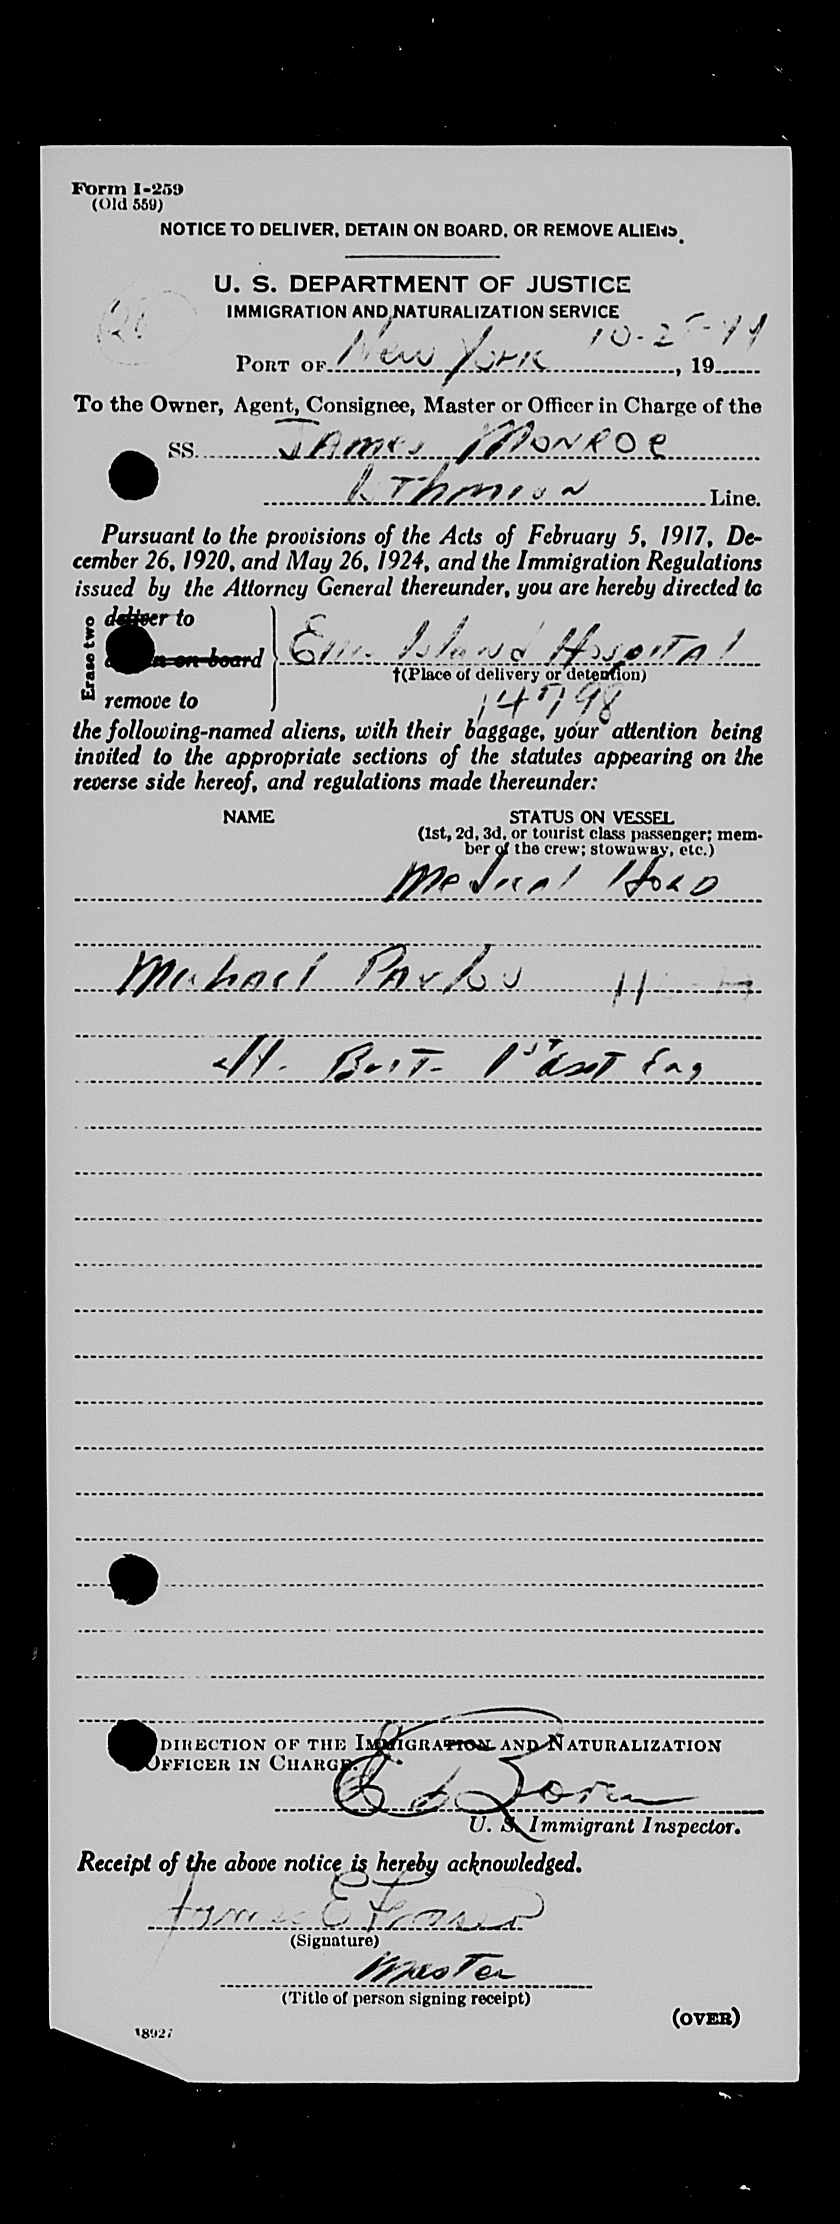 Form I-259
(Old 559)
NOTICE TO DELIVER, DETAIN ON BOARD, OR REMOVE ALIENS
U. S. DEPARTMENT OF JUSTICE
IMMIGRATION AND NATURALIZATION SERVICE
10-25-44
PORT OF New York, 19
To the Owner, Agent, Consignee, Master or Officer in Charge of the
SS. James Monroe
Line.
Pursuant to the provisions of the Acts of February 5, 1917, De-
cember 26, 1920, and May 26, 1924, and the Immigration Regulations
issued by the Attorney General thereunder, you are hereby directed to
Erase two
deliver to
on board
Island Hospital
†(Place of delivery or detention)
remove to
14798
the following-named aliens, with their baggage, your attention being
invited to the appropriate sections of the statutes appearing on the
reverse side hereof, and regulations made thereunder:
NAME STATUS ON VESSEL
(1st, 2d, 3d, or tourist class passenger; mem-
ber of the crew; stowaway, etc.)
Medical Hold
Michael Pavlou
1st Asst Eng
DIRECTION OF THE IMMIGRATION AND NATURALIZATION
OFFICER IN CHARGE.
U. S. Immigrant Inspector.
Receipt of the above notice is hereby acknowledged.
James E Fraser
(Signature)
Master
(Title of person signing receipt)
(OVER)
18927